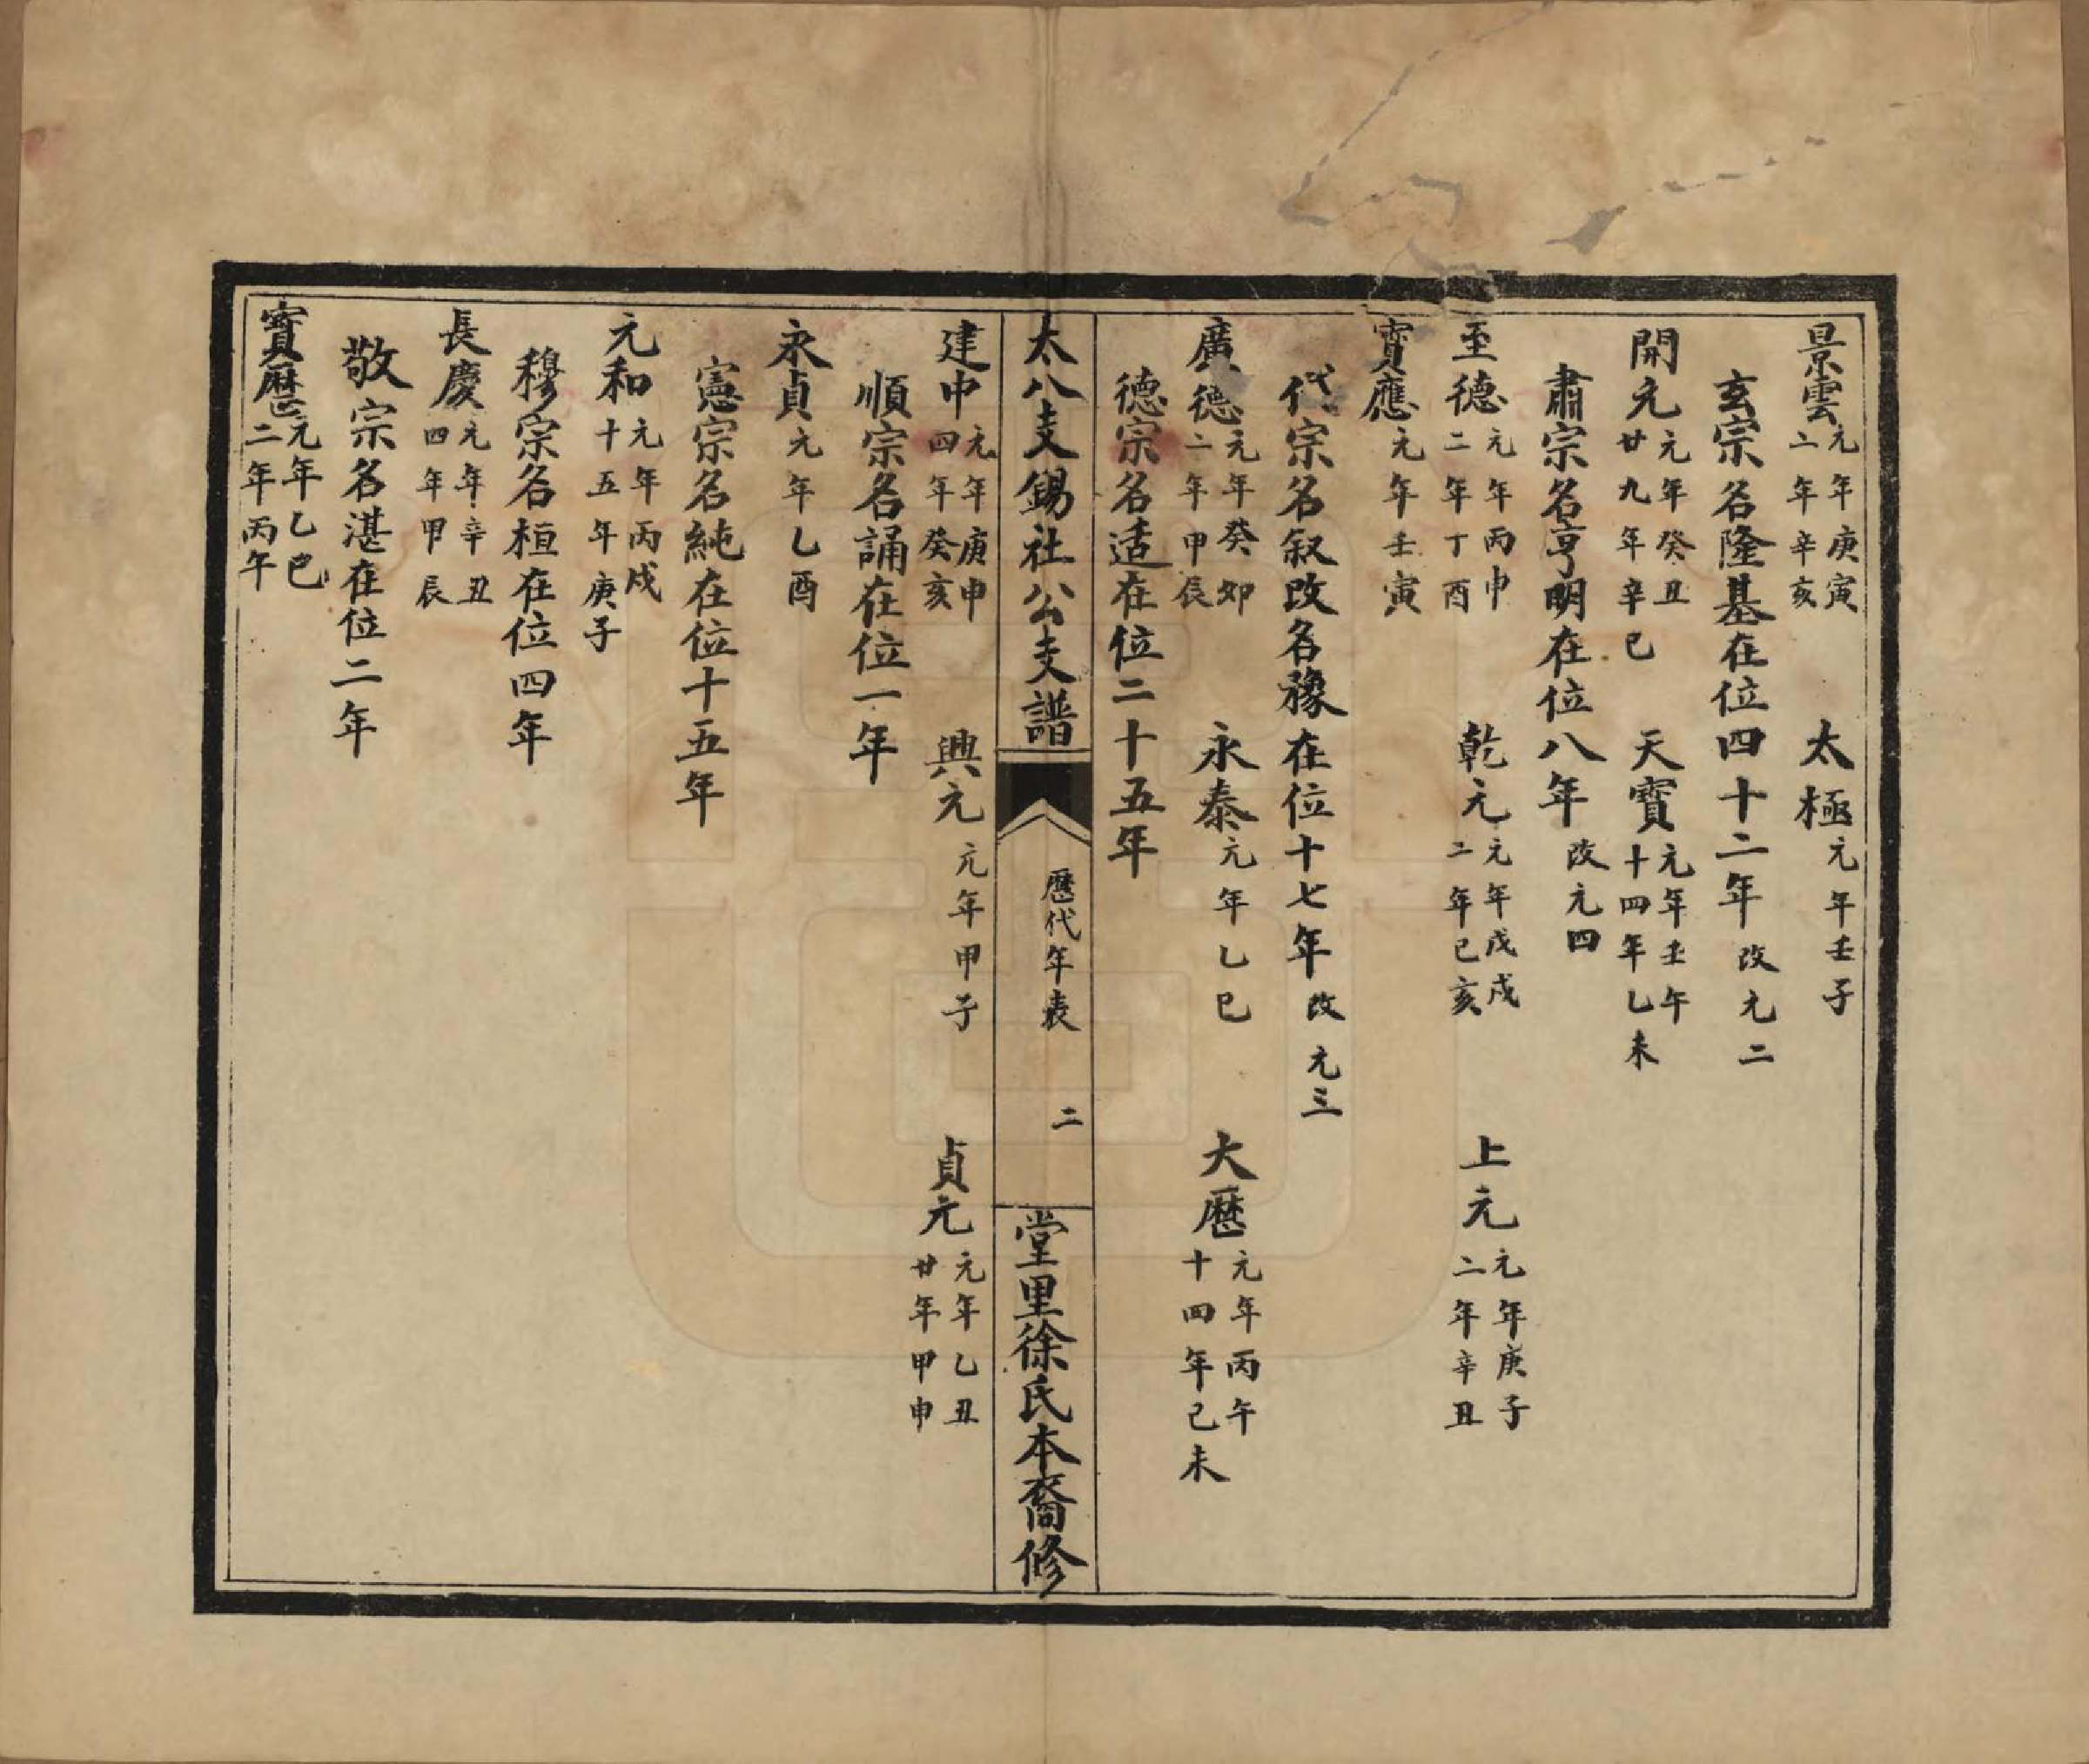 景雲元年庚寅二年辛亥　太極元年壬子
玄宗名隆基在位四十二年改元二
開元元年癸丑廿九年辛巳　天寶元年壬午十四年乙未
肅宗名亨明在位八年改元四
至德元年丙申二年丁酉　乾元元年戊戌二年己亥　上元元年庚子二年辛丑
寶應元年壬寅
代宗名叙改名豫在位十七年改元三
廣德元年癸卯二年甲辰　永泰元年乙巳　大曆元年丙午十四年己未
德宗名适在位二十五年
太八支錫社公支譜　歷代年表　二　堂里徐氏本裔修
建中元年庚申四年癸亥　興元元年甲子　貞元元年乙丑廿年甲申
順宗名誦在位一年
永貞元年乙酉
憲宗名純在位十五年
元和元年丙戌十五年庚子
穆宗名桓在位四年
長慶元年辛丑四年甲辰
敬宗名湛在位二年
寶曆元年乙巳二年丙午